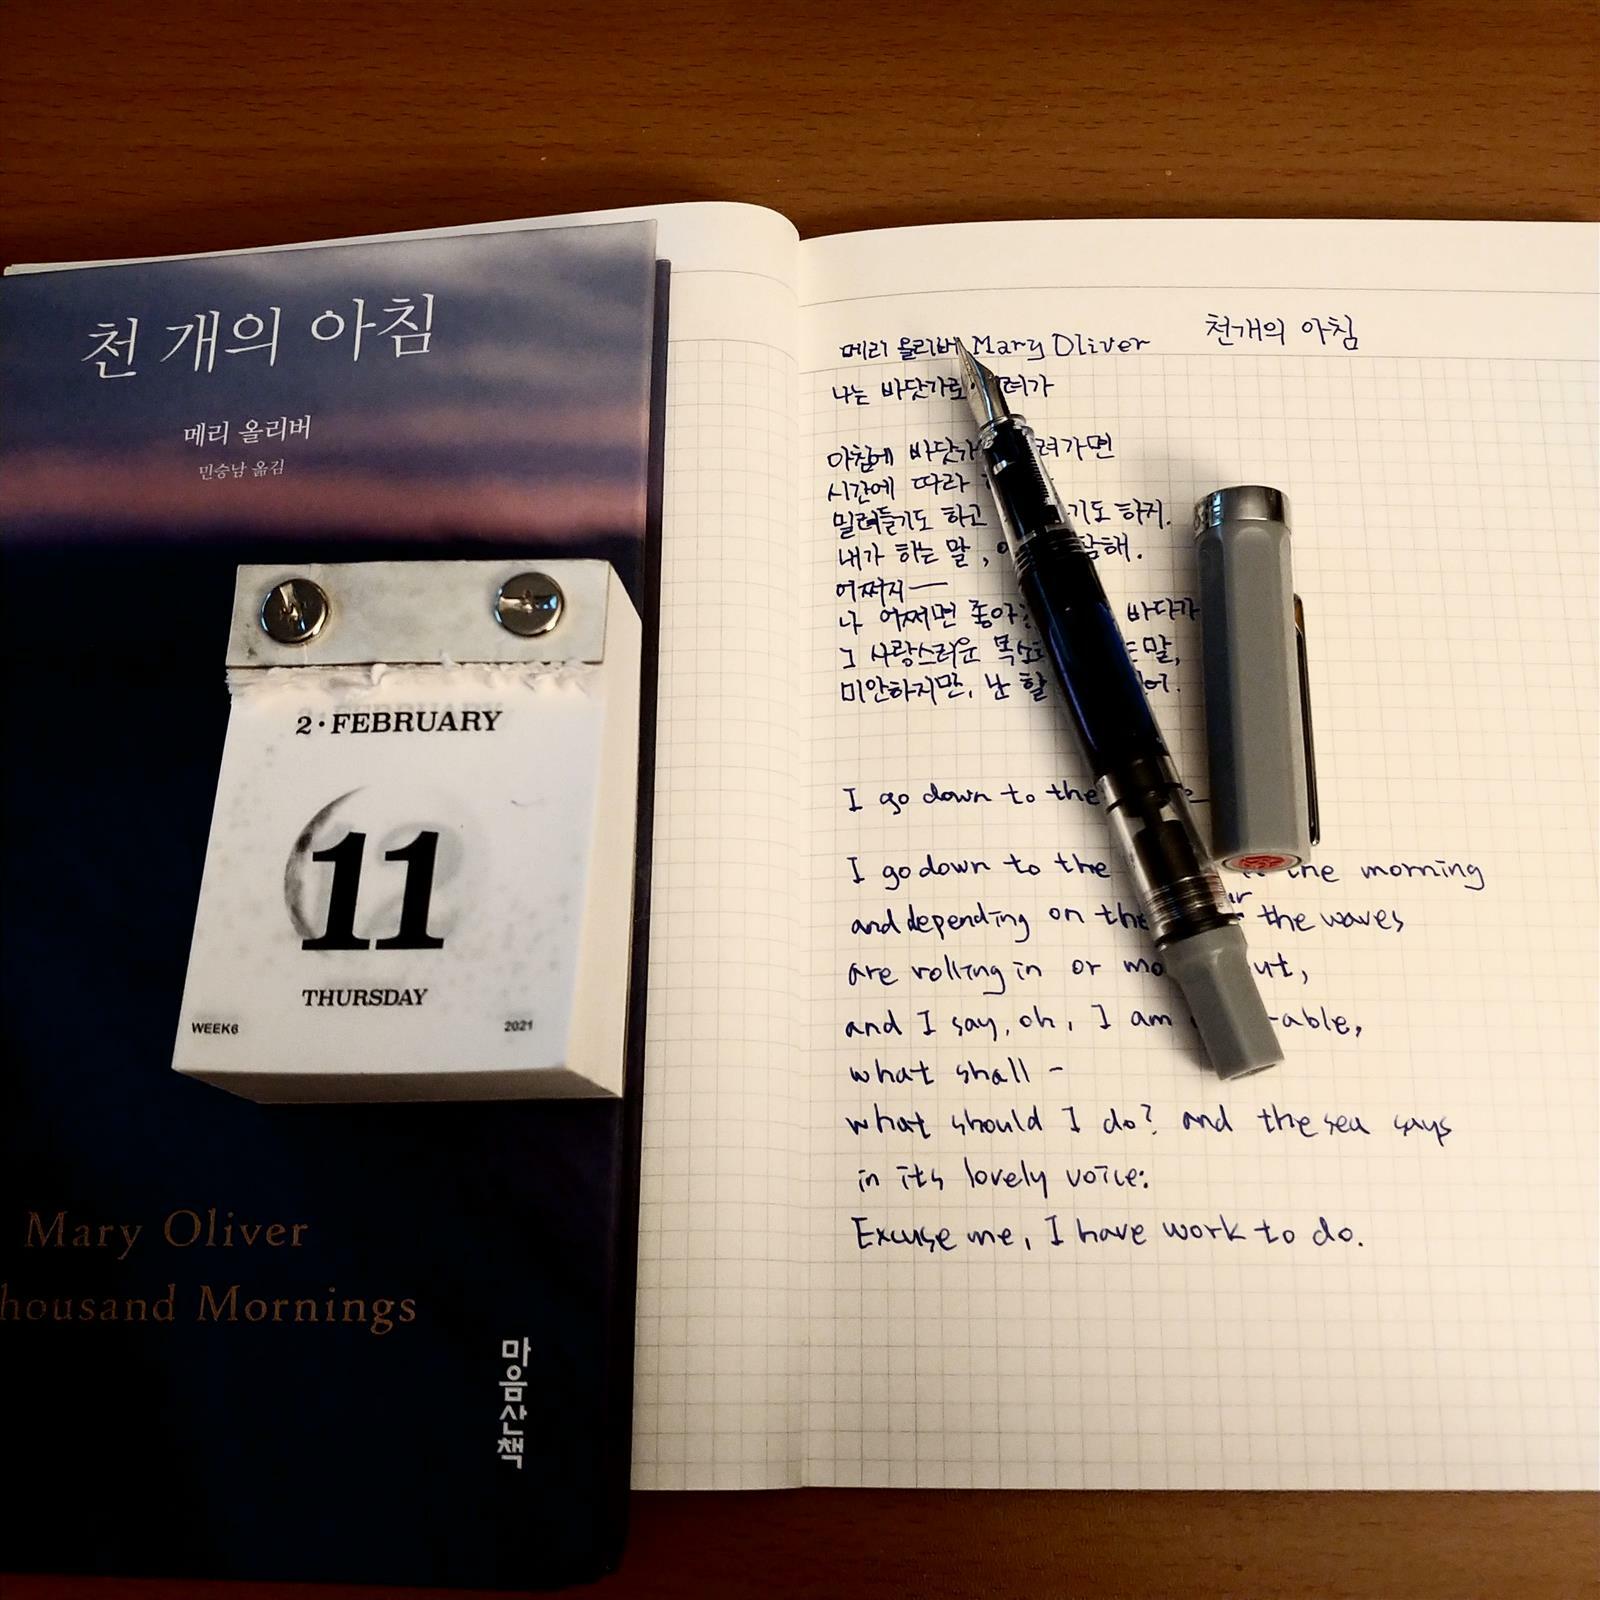 천 개의 아침
메리 올리버
민승남 옮김
2·FEBRUARY
11
THURSDAY
WEEK6 2021
Mary Oliver
housand Mornings
마음산책
메리 올리버 Mary Oliver 천개의 아침
나는 바닷가로 려가
아침에 바닷가 려가면
시간에 따라
밀려들기도 하고 기도 하지.
내가 하는 말, 참해.
어쩌지—
나 어쩌면 좋아 바다가
그 사랑스러운 목소 말,
미안하지만, 난 할 어.
I go down to the
I go down to the the morning
and depending on the the waves
are rolling in or mo out,
and I say, oh, I am -able,
what shall -
what should I do? and the sea says
in its lovely voice:
Excuse me, I have work to do.